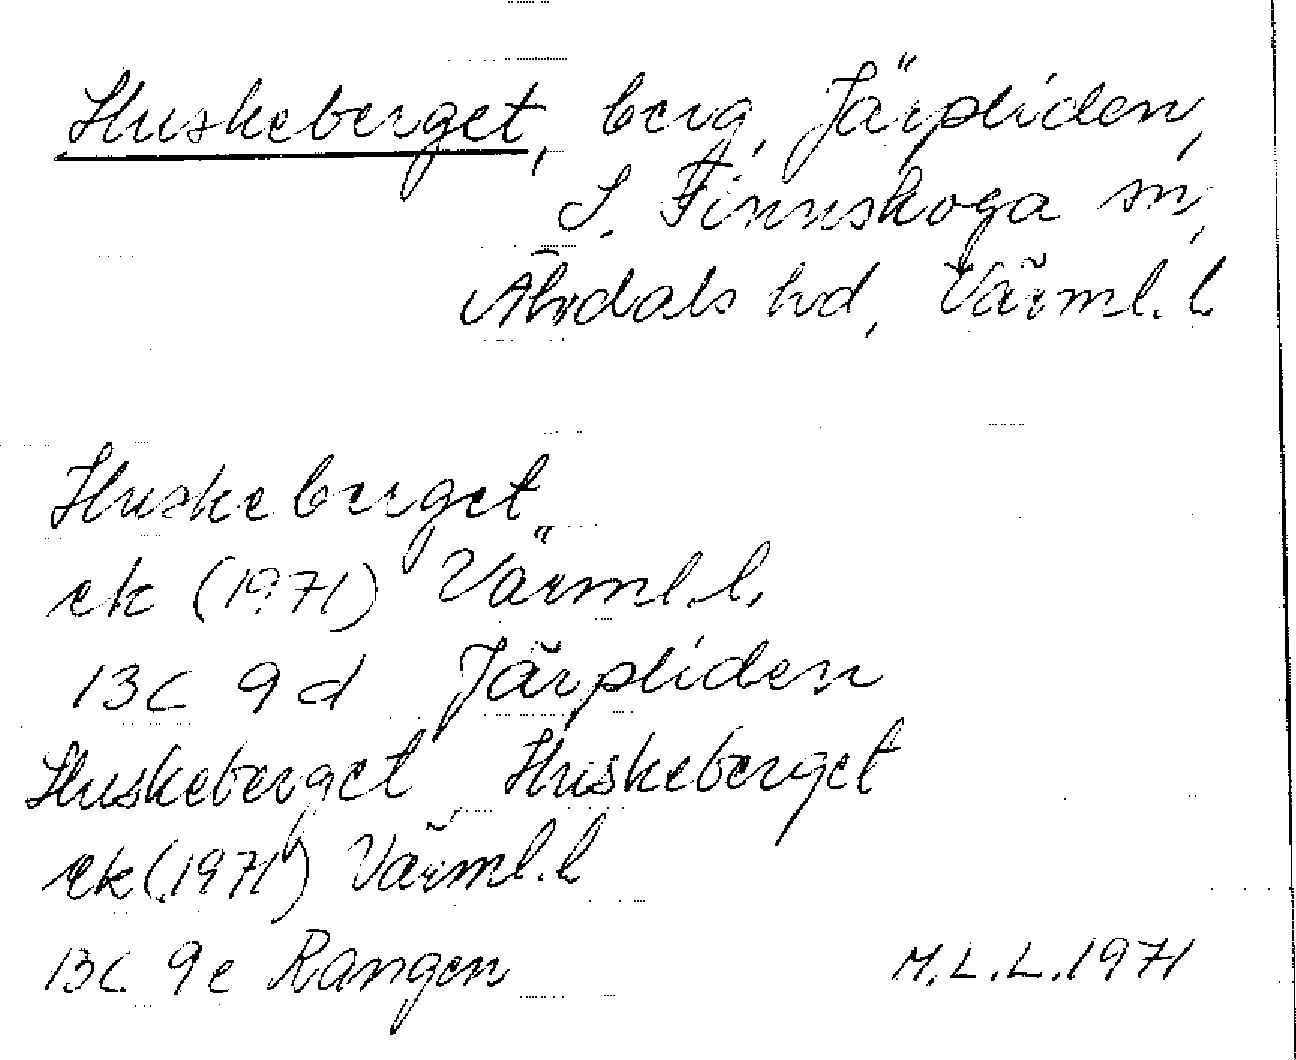 Huskeberget, berg, Järpliden,
S. Finnskoga sn,
Älvdals hd, Värml. l.
Huskeberget
ek (1971) Värml. l.
13C 9d Järpliden
Huskeberget Huskeberget
ek (1971) Värml. l
13C 9e Rangen
M.L.L. 1971